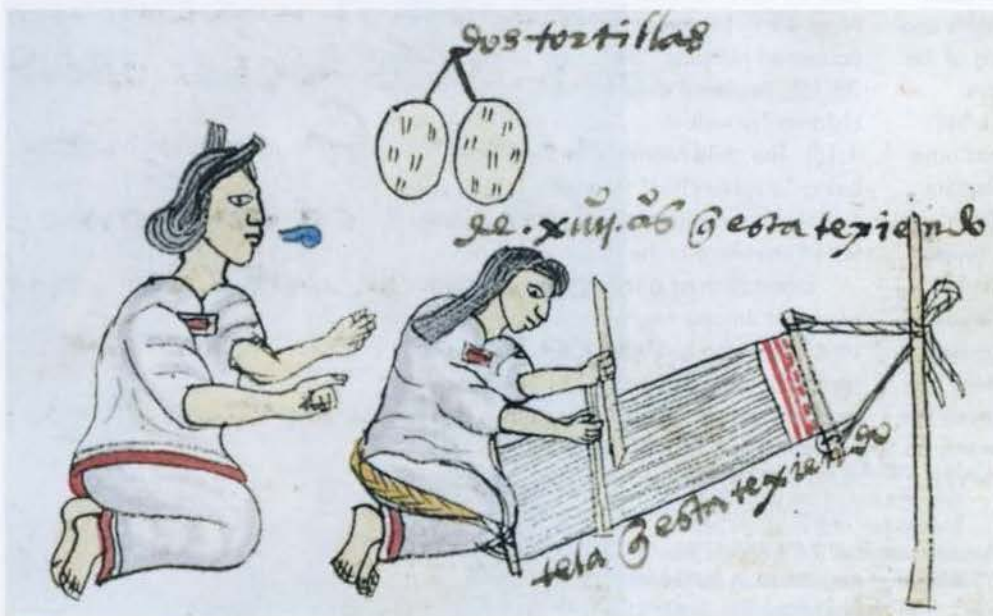 dos tortillas
de. xiiij. años q̃ esta texiendo
tela q̃ esta texiendo